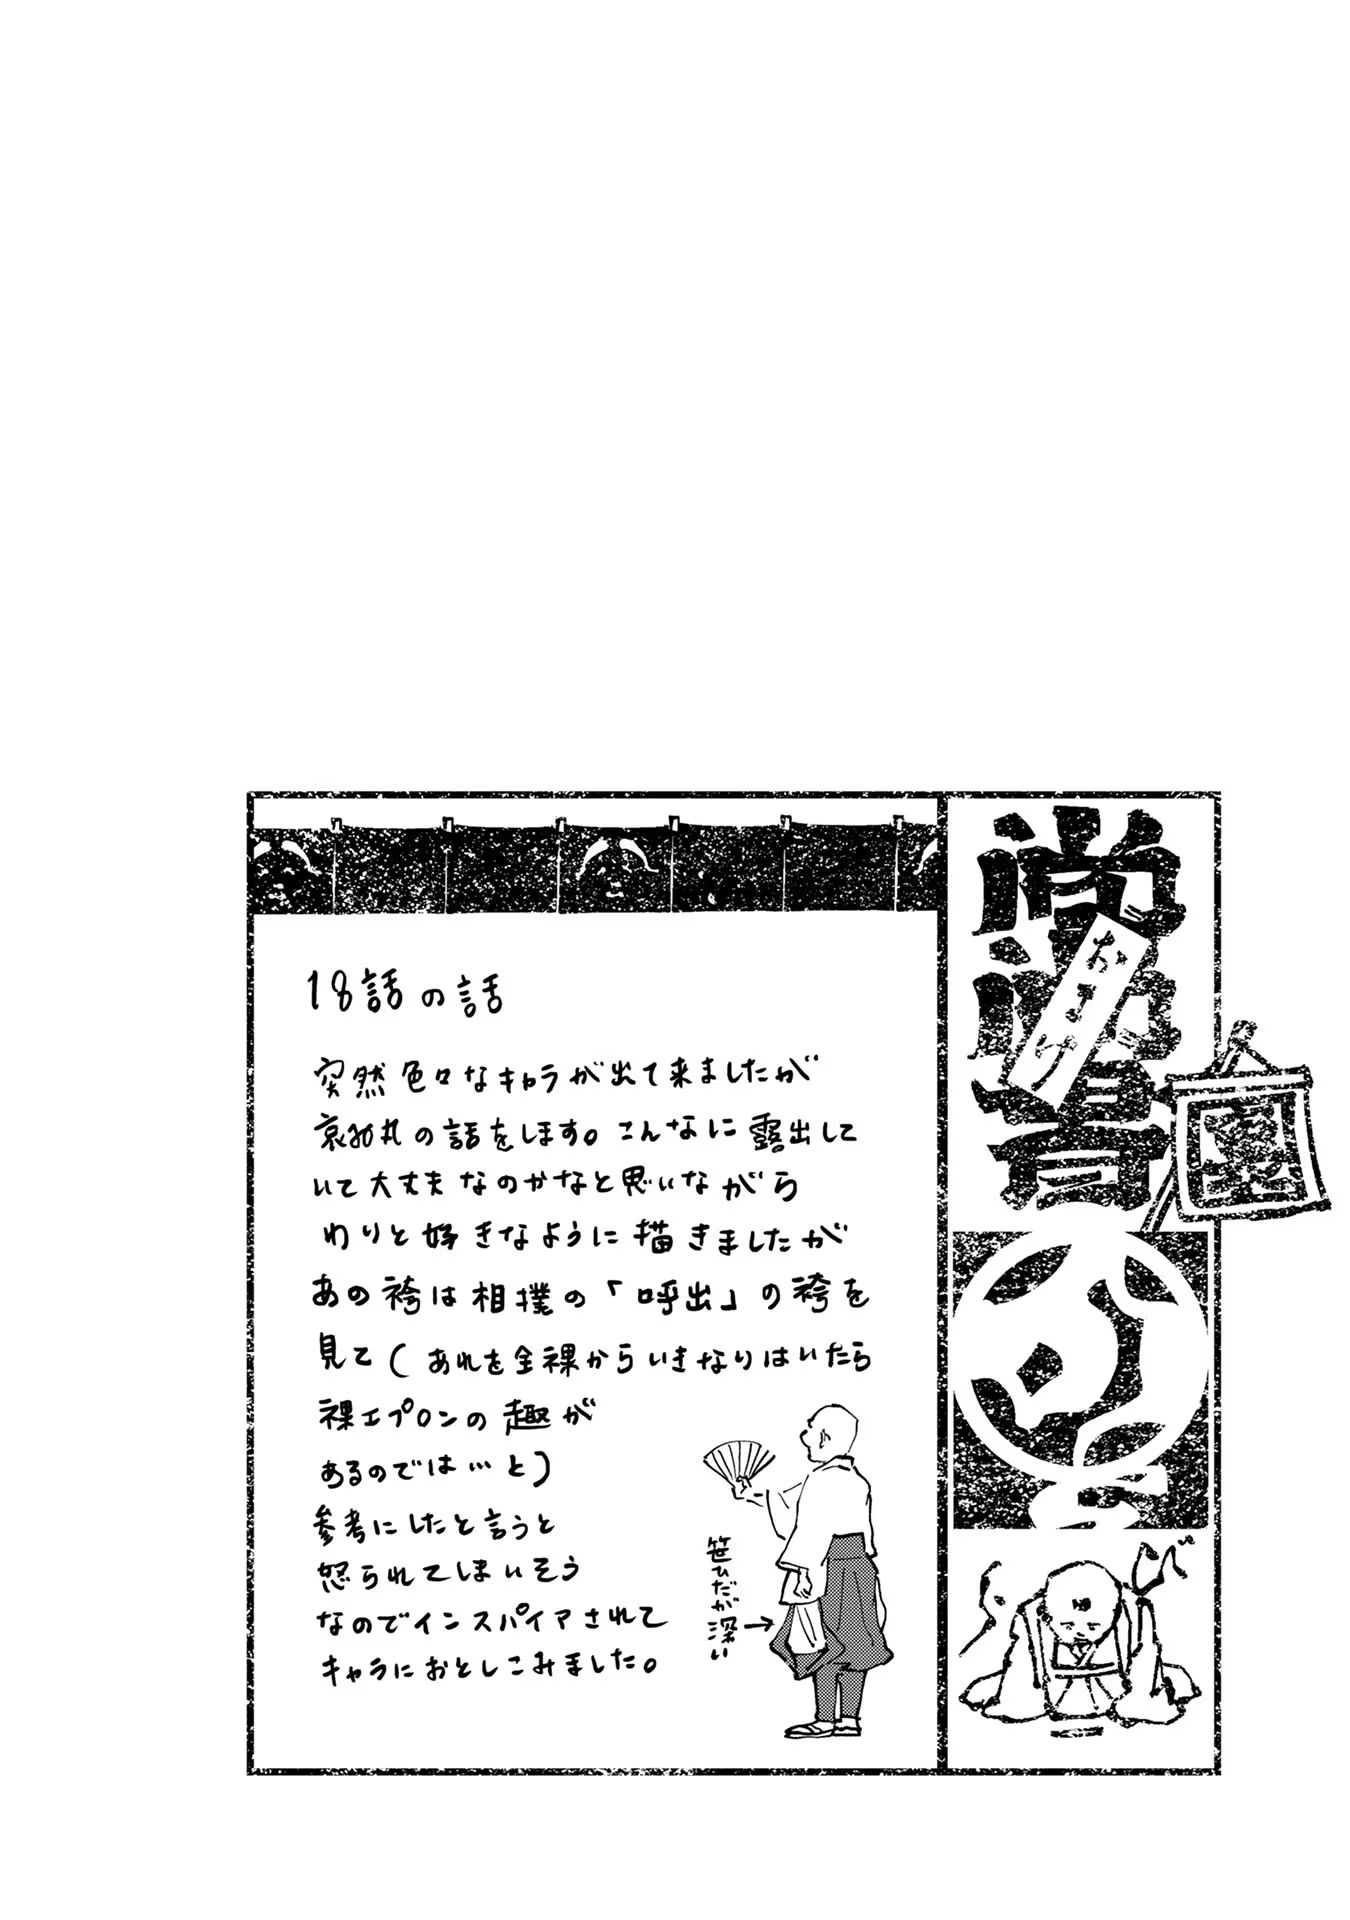 18話の話
突然色々なキャラが出て来ましたが
哀れ丸の話をします。こんなに露出して
いて大丈夫なのかなと思いながら
わりと好きなように描きましたが
あの袴は相撲の「呼出」の袴を
見て(あれを全裸からいきなりはいたら
裸エプロンの趣が
あるのでは…と)
参考にしたと言うと
怒られてしまいそう
なのでインスパイアされて
キャラにおとしこみました。
笹ひだが深い→
おまけ